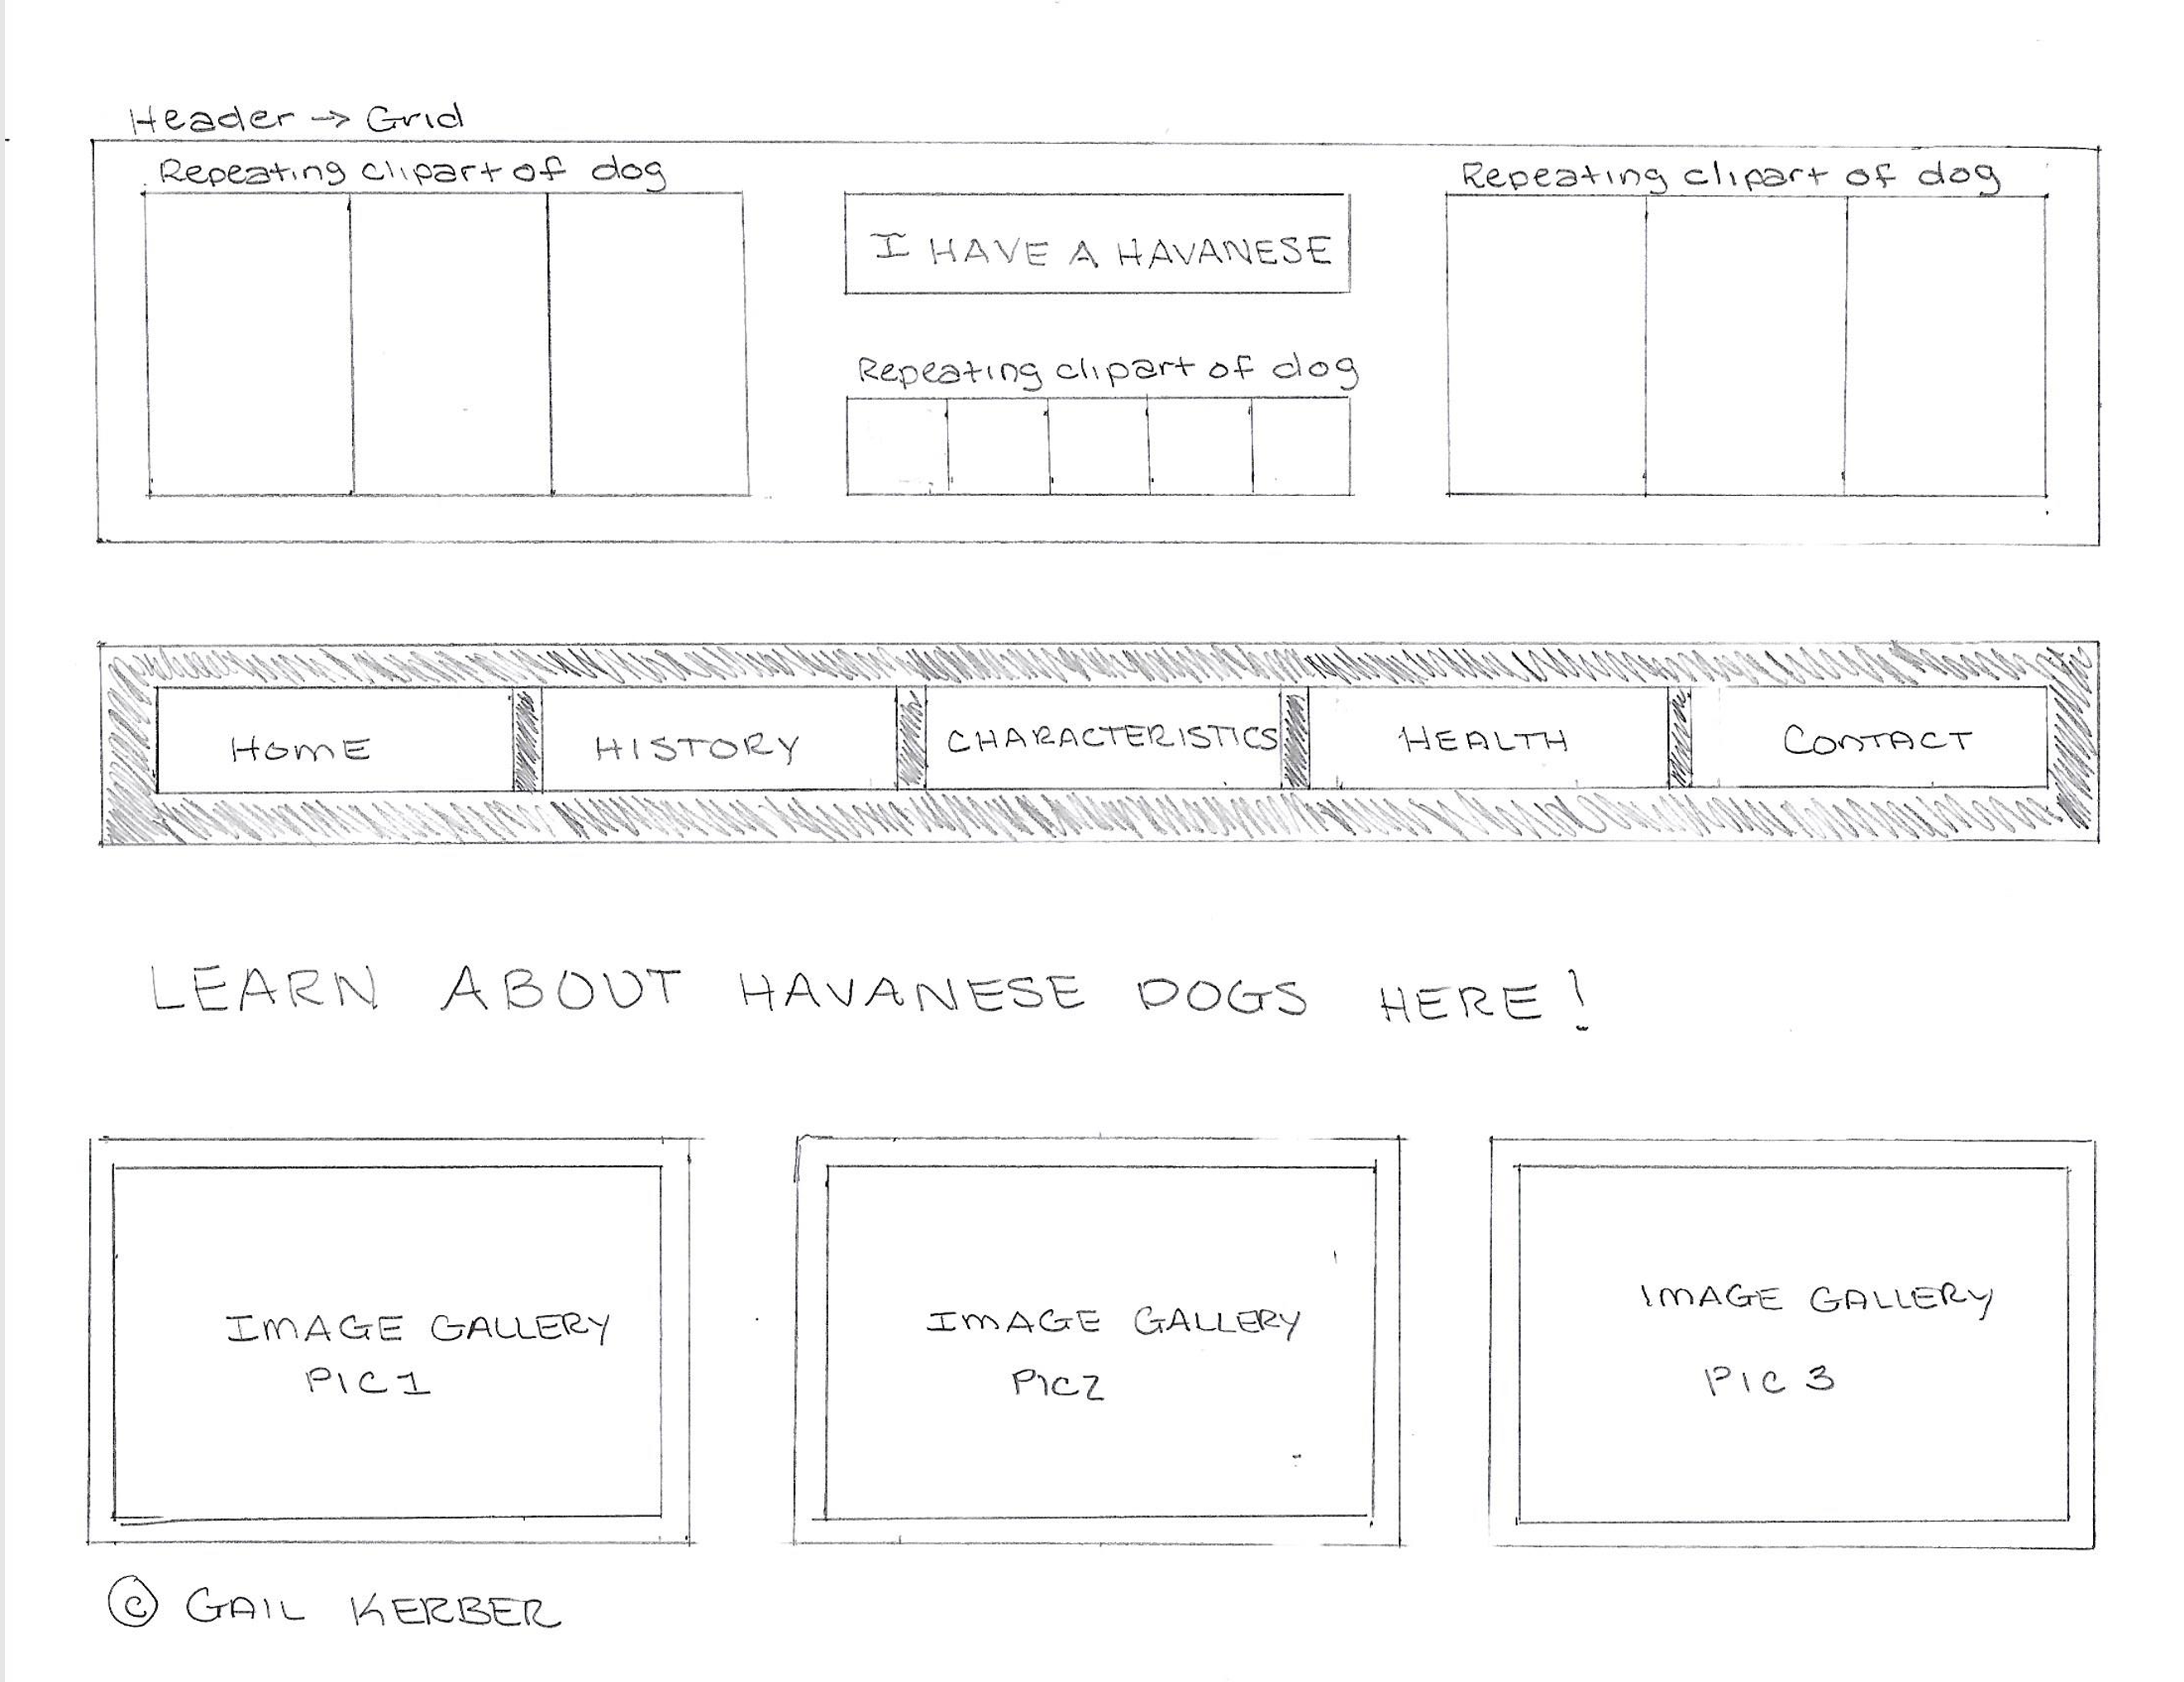 Header → Grid
Repeating clipart of dog
Repeating clipart of dog
I HAVE A HAVANESE
Repeating clipart of dog
HOME
HISTORY
CHARACTERISTICS
HEALTH
CONTACT
LEARN ABOUT HAVANESE DOGS HERE!
IMAGE GALLERY
PIC 1
IMAGE GALLERY
PIC 2
IMAGE GALLERY
PIC 3
© GAIL KERBER